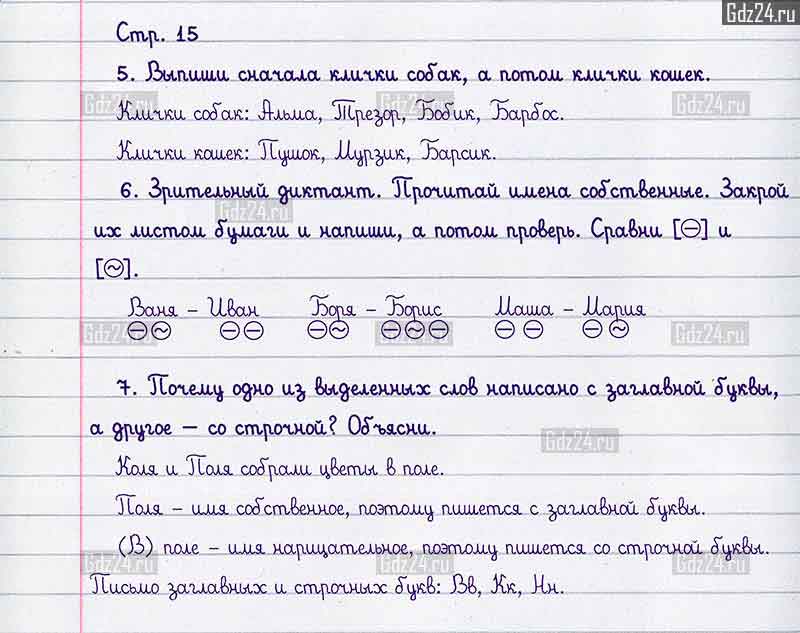 Gdz24.ru
Стр. 15
5. Выпиши сначала клички собак, а потом клички кошек.
Gdz24.ru Gdz24.ru Gdz24.ru
Клички собак: Альма, Трезор, Бобик, Барбос.
Клички кошек: Пушок, Мурзик, Барсик.
6. Зрительный диктант. Прочитай имена собственные. Закрой
Gdz24.ru
их листом бумаги и напиши, а потом проверь. Сравни [⊖] и
[~].
Ваня – Иван Боря – Борис Маша – Мария
Gdz24.ru Gdz24.ru Gdz24.ru
7. Почему одно из выделенных слов написано с заглавной буквы,
а другое – со строчной? Объясни.
Gdz24.ru
Коля и Поля собрали цветы в поле.
Поля – имя собственное, поэтому пишется с заглавной буквы.
(В) поле – имя нарицательное, поэтому пишется со строчной буквы.
Gdz24.ru Gdz24.ru Gdz24.ru
Письмо заглавных и строчных букв: Вв, Кк, Нн.